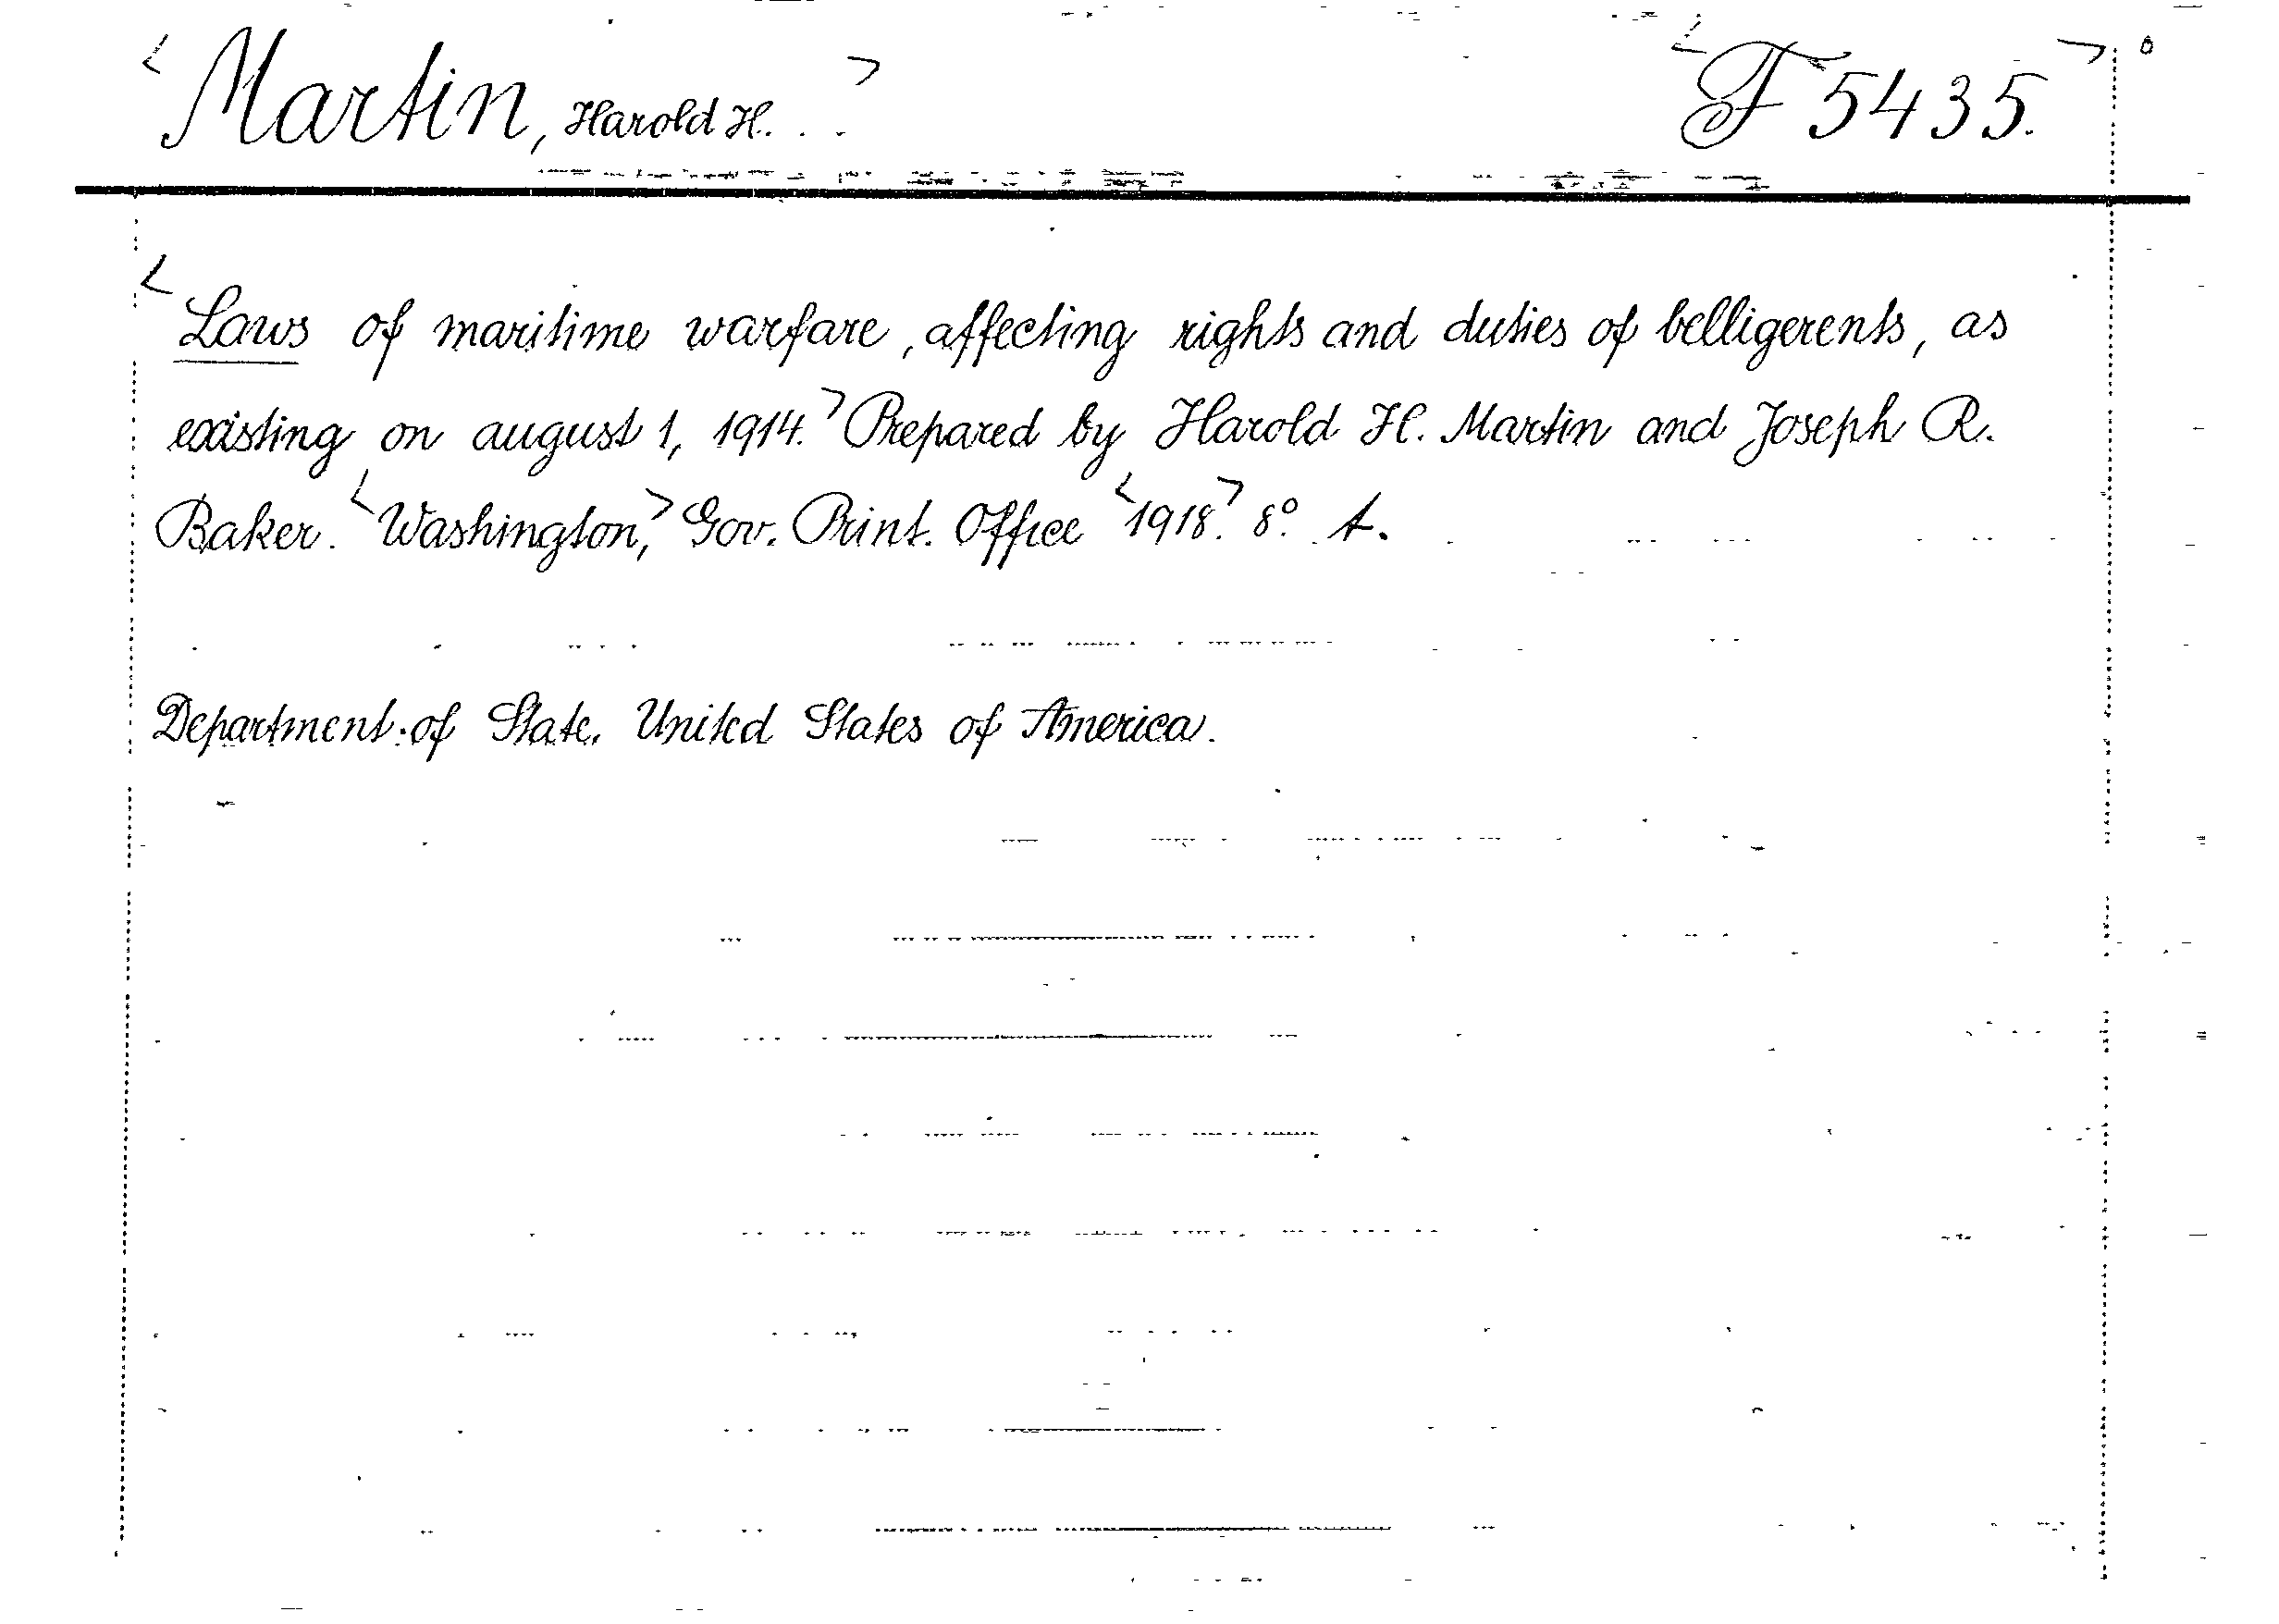 <Martin, Harold H. . . > <F 5435.>
<Laws of maritime warfare, affecting rights and duties of belligerents, as
existing on august 1, 1914.> Prepared by Harold H. Martin and Joseph R.
Baker. <Washington,> Gov. Print. Office <1918.> 8°. A.
Department of State. United States of America.